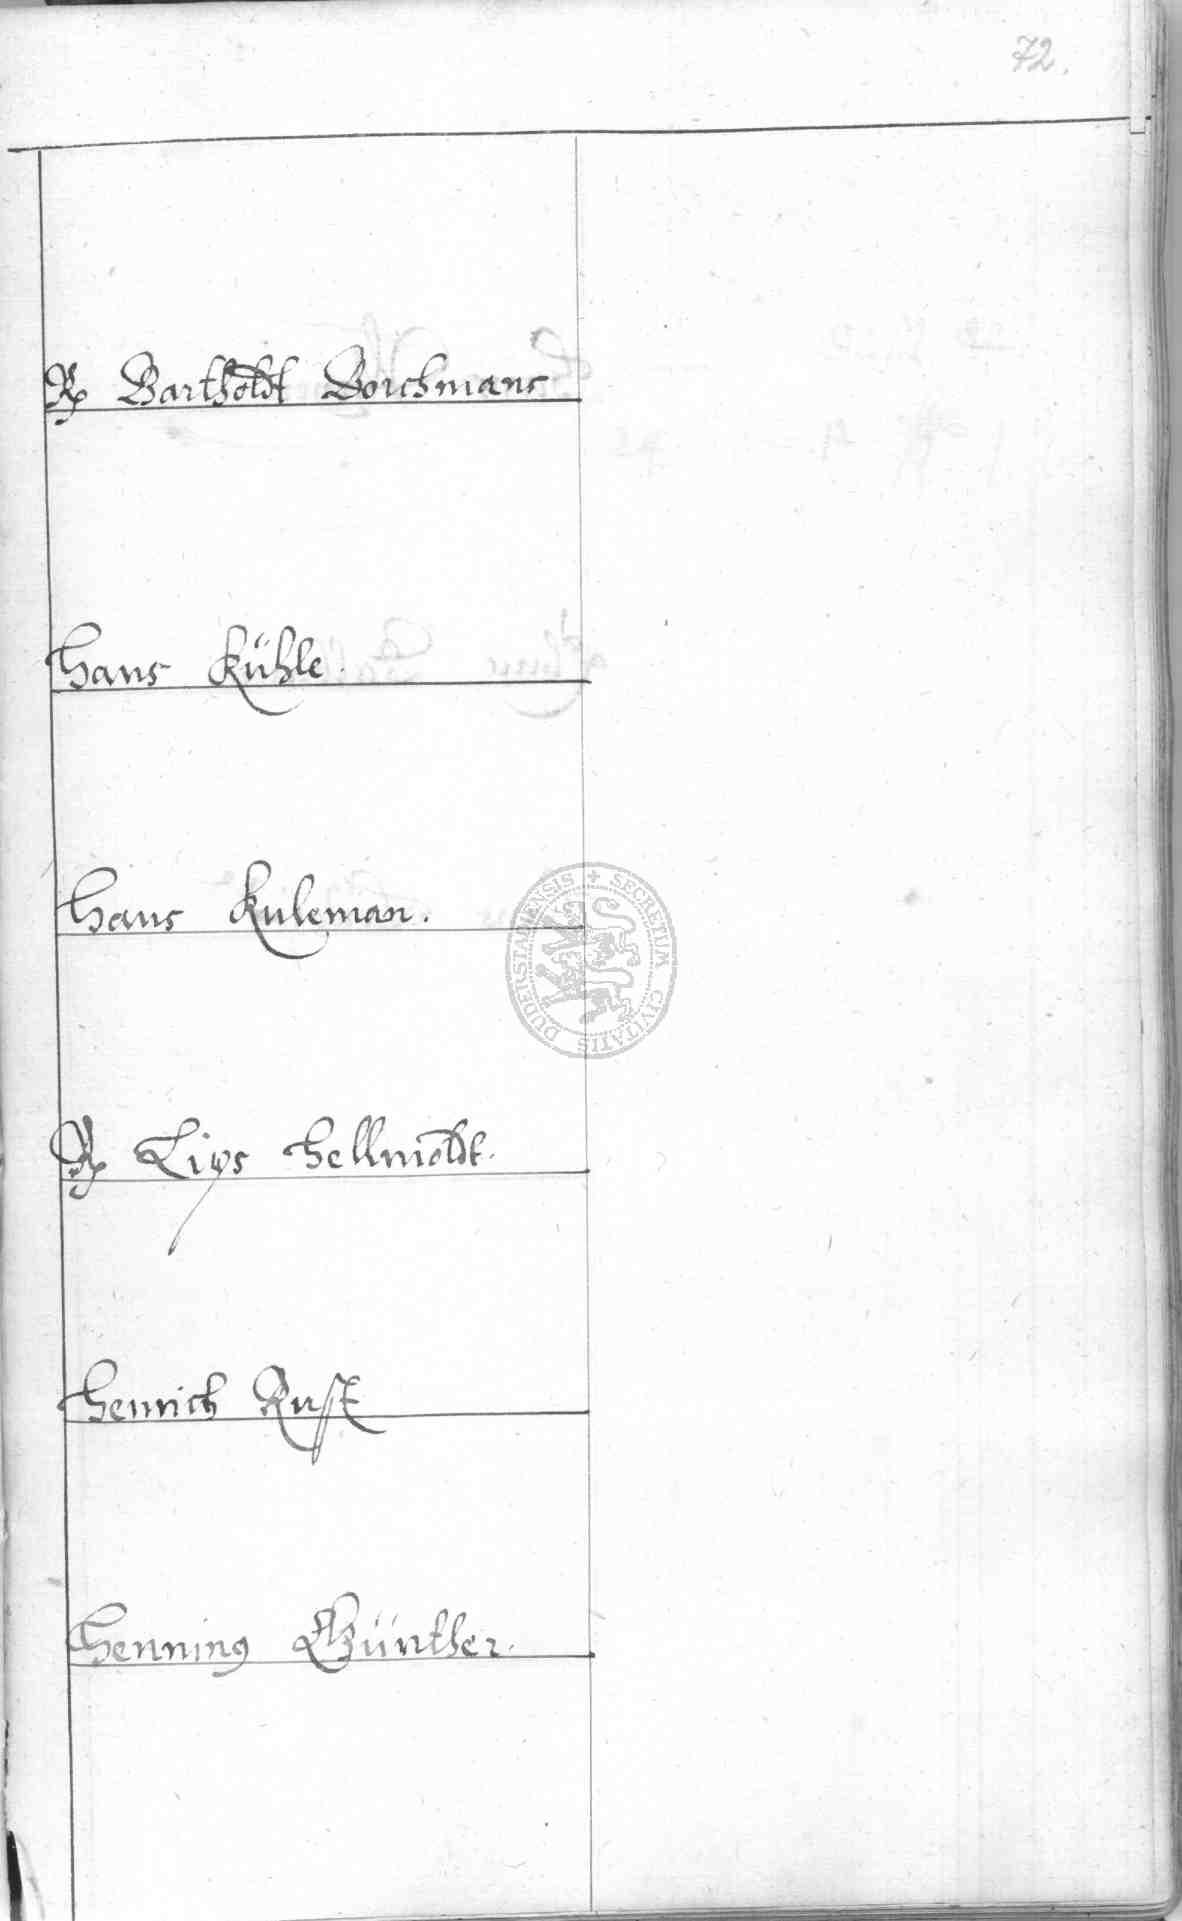 72.
Bartholdt Borchmans
Hans Kühle.
Hans Kuleman.
Lips Hellmoldt.
Henrich Rust
Henning Günther.
SECRETUM CIVITATIS DUDERSTADIENSIS